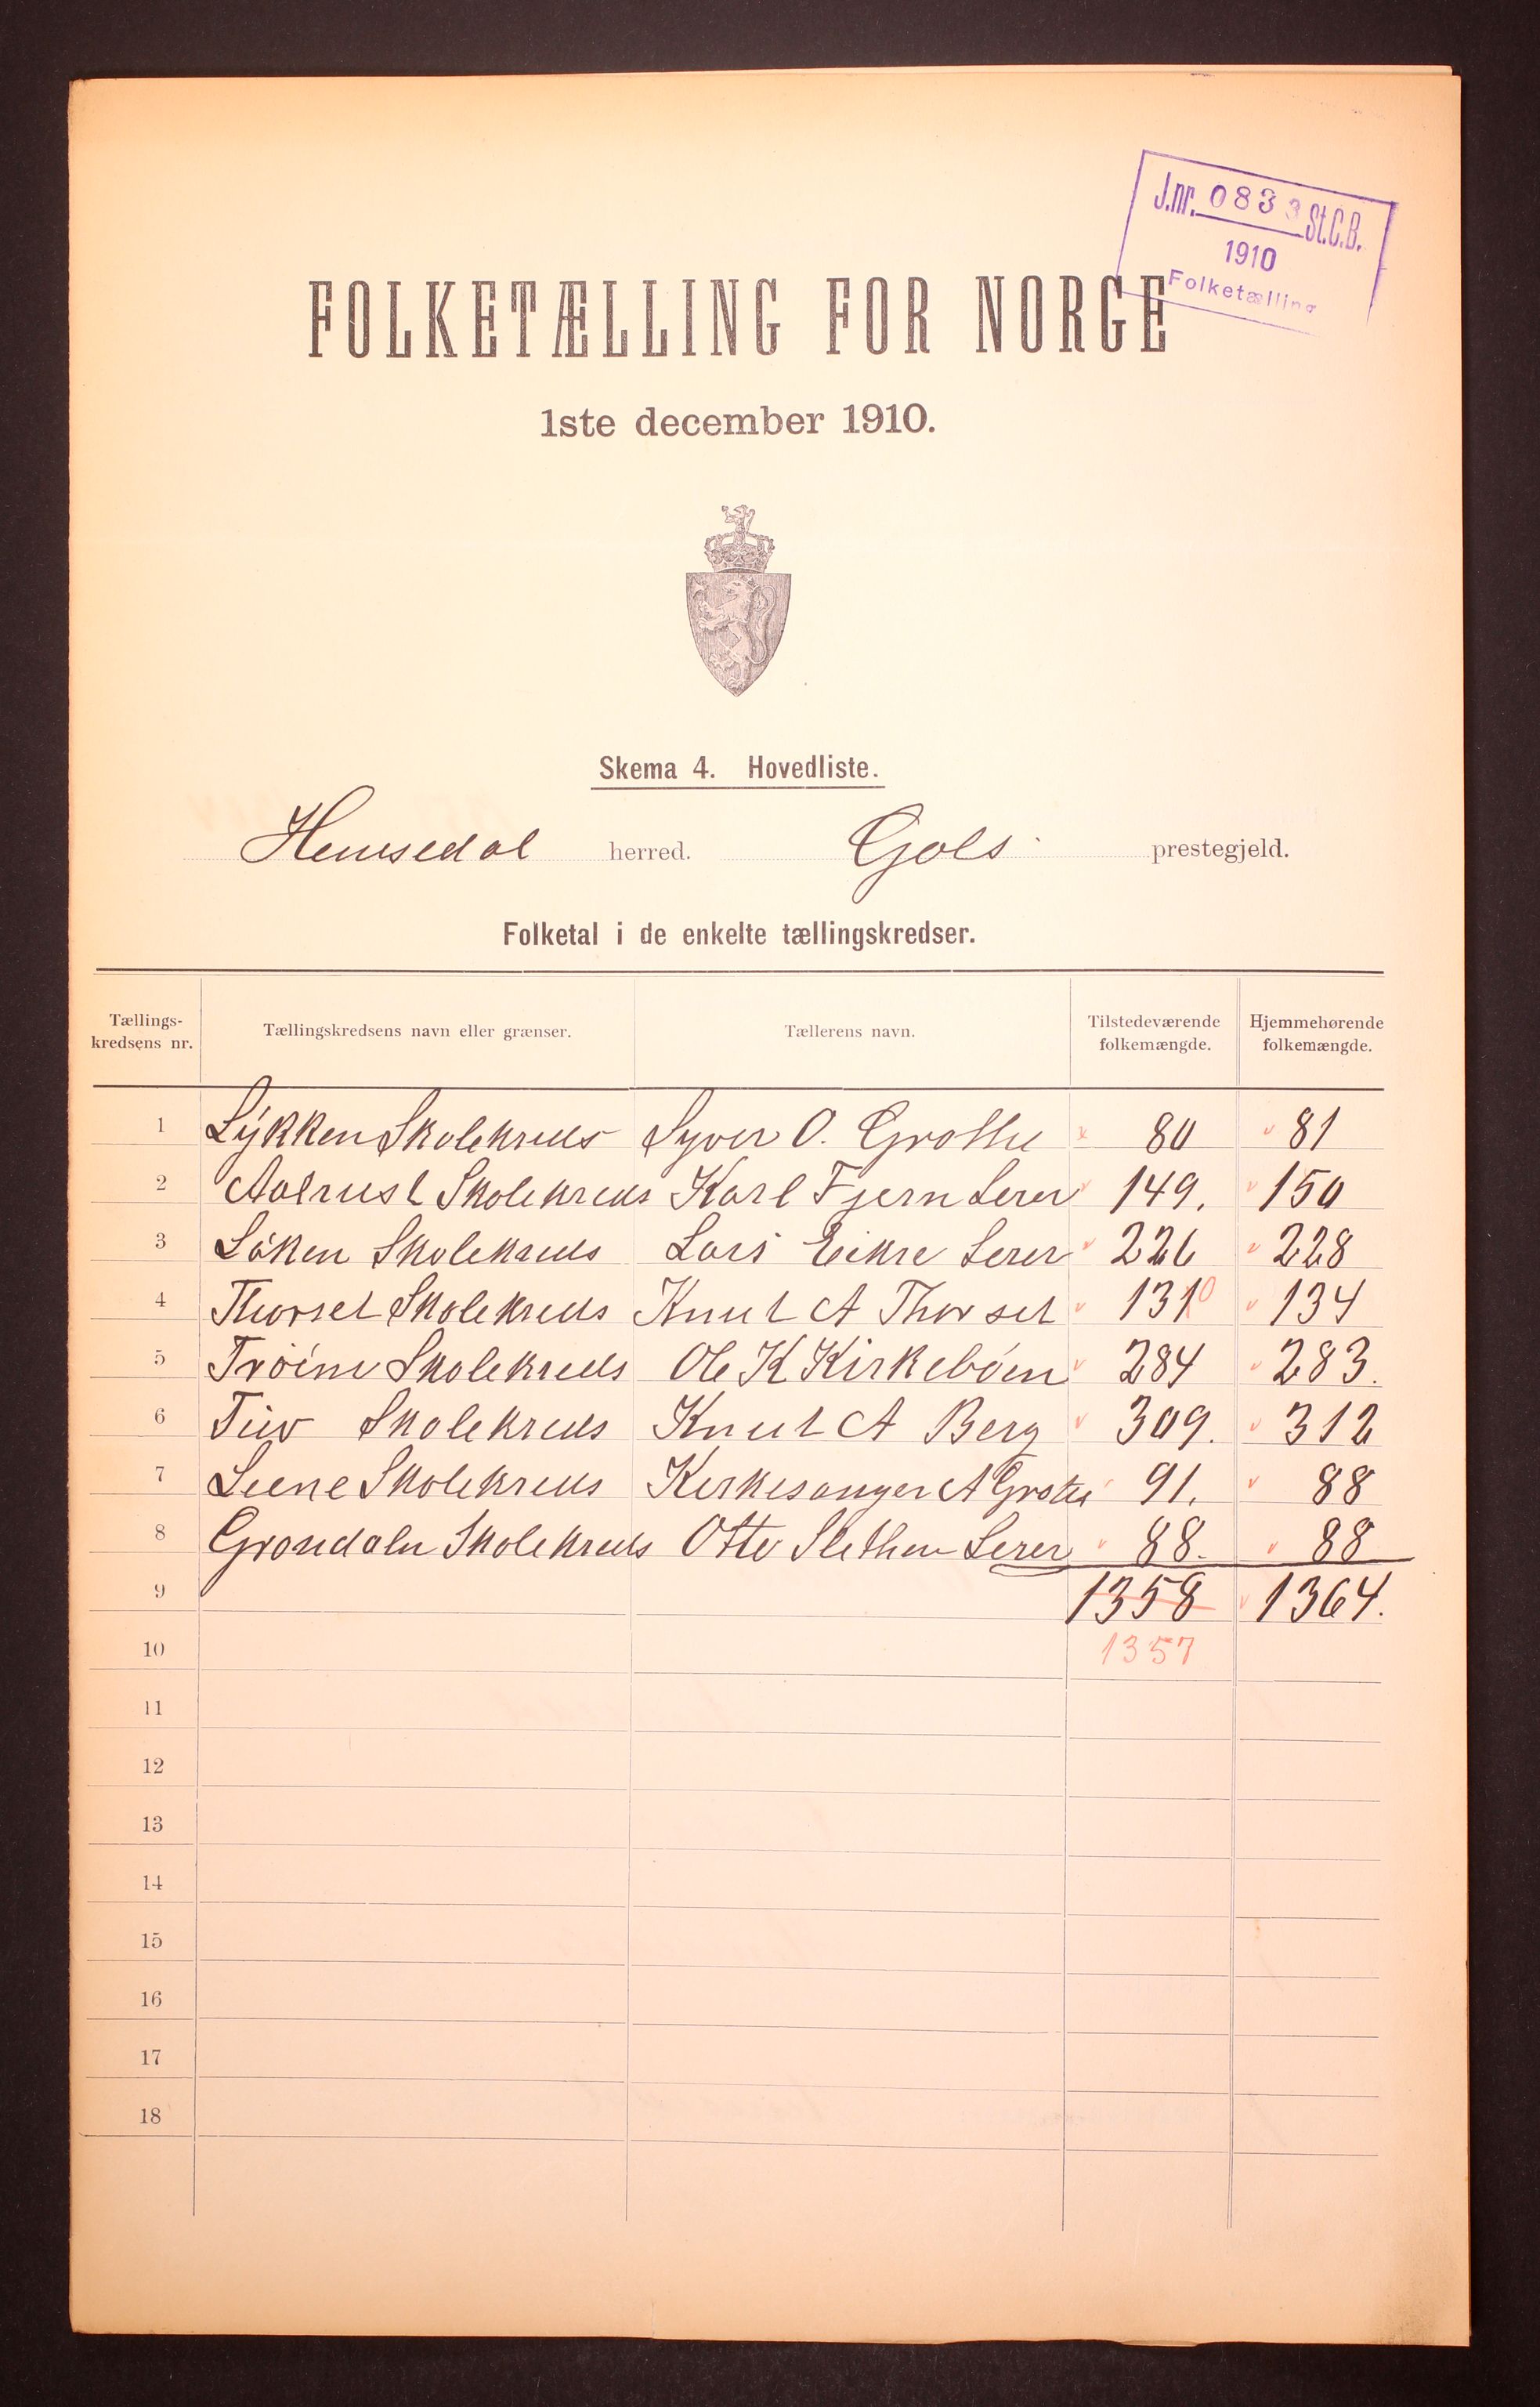 J.nr. 0833 St.C.B.
1910
Folketælling
FOLKETÆLLING FOR NORGE
1ste december 1910.
Skema 4. Hovedliste.
Hemsedal herred. Gols prestegjeld.
Folketal i de enkelte tællingskredser.
Tællings-kredsens nr. Tællingskredsens navn eller grænser. Tællerens navn. Tilstedeværende folkemængde. Hjemmehørende folkemængde.
1 Lykken Skolekreds Syver O. Grøthe 80 81
2 Aalrust Skolekreds Karl Fjern Lerer 149. 150
3 Løken Skolekreds Lars Eikre Lerer 226 228
4 Thorset Skolekreds Knut A Thorset 131 0 134
5 Trøim Skolekreds Ole K Kirkebøen 284 283.
6 Tuv Skolekreds Knut A Berg 309. 312
7 Skolekreds Kirkesanger A Grøthe 91. 88
8 Grøndaln Skolekreds Otto Slethen Lerer 88. 88
9 1358 1364.
10 1357
11
12
13
14
15
16
17
18